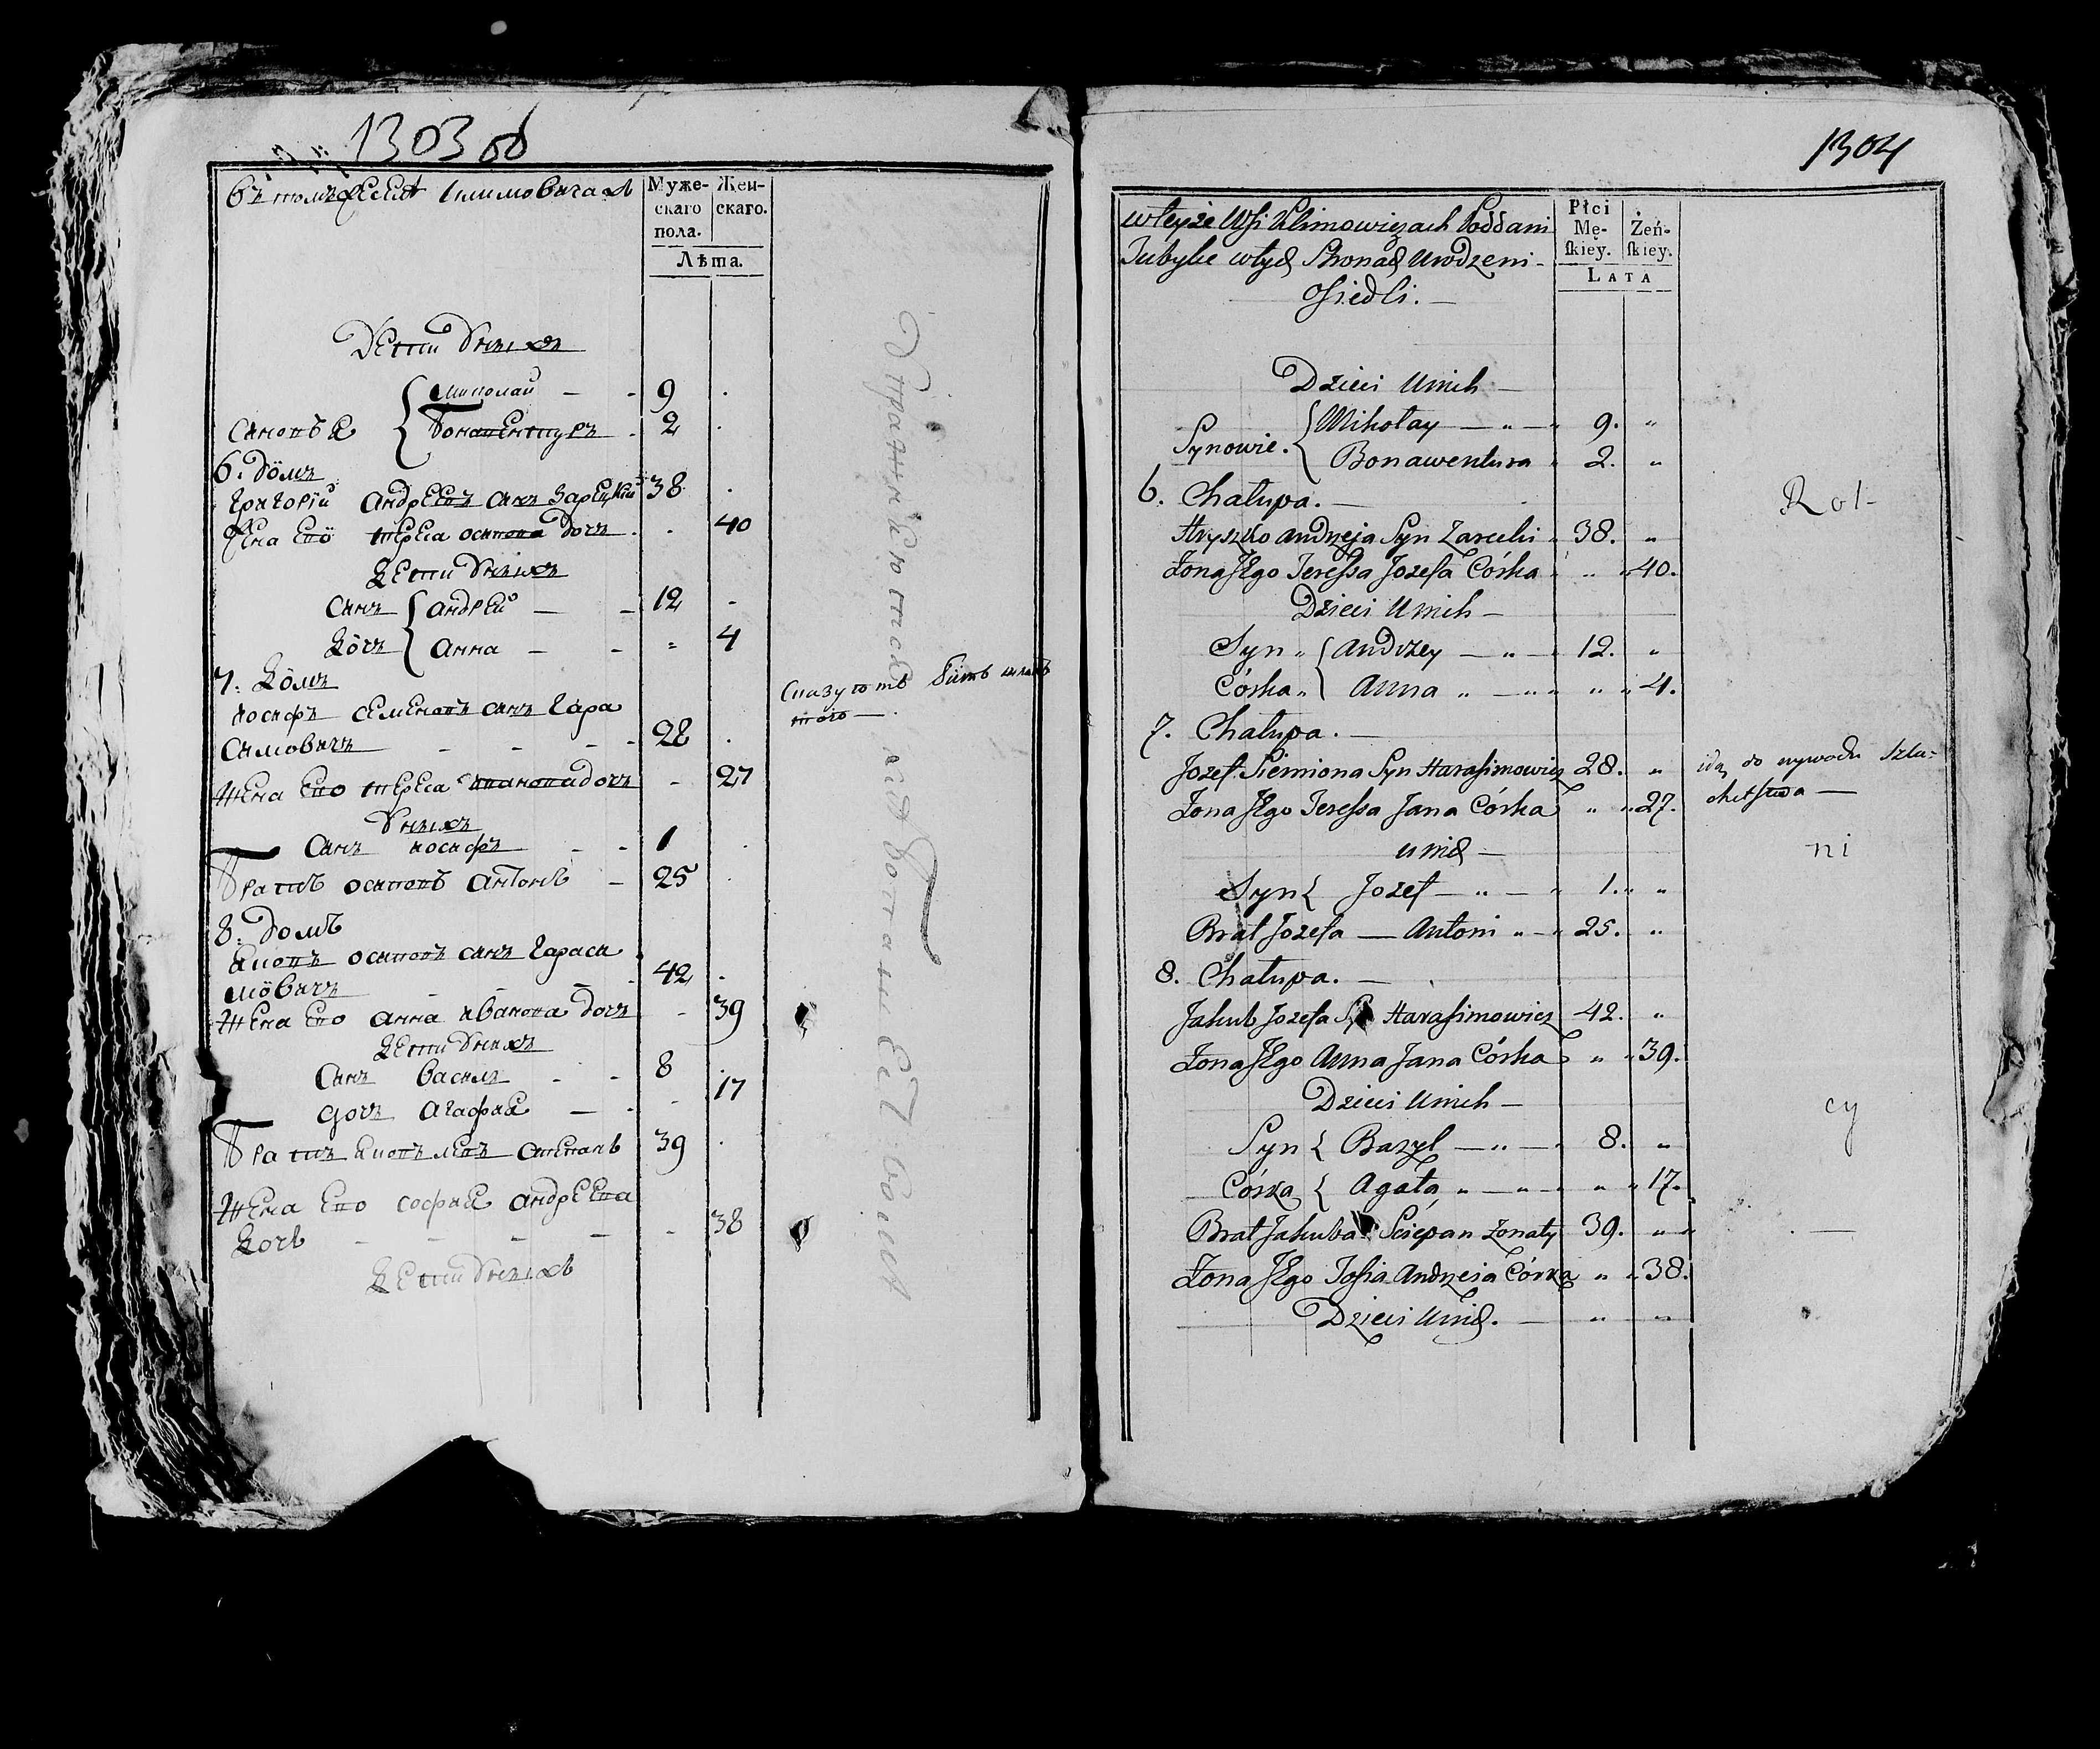 1303 об
въ тойже селе Климовичахъ
Муже-
скаго
пола.
Жен-
скаго.
Лѣта.
Дети Унихъ
Миколай — - 9 .
Сыновья
Бонавентуръ . 2 .
6. Домъ
Григорій Андреевъ сынъ Зарецкий 38 .
Жена его Тереса Осипова дочъ . - 40
Дети Унихъ
Сынъ { Андрей — - 12 -
Дочъ { Анна - - = 4
7. Домъ
Иосифъ Семеновъ сынъ Гара
симовичъ - - - - 28 .
Жена его Тереса дочъ - 27
Унихъ
Сынъ Иосифъ - - 1 .
Братъ Осиповъ Антонъ - 25 .
8. Домъ
Яковъ Осиповъ сынъ Гараси
мовичъ - - - - 42 .
Жена его Анна Иванова дочъ - 39
Дети Унихъ
Сынъ Василъ - - 8 .
Дочъ Агафия — - - 17
Братъ Степанъ 39 .
Жена его София Андреева
дочь - - - - - 38
Дети Унихъ
1304
wteyże Wsi Klimowiczach Poddani
Tubylce wtych Stronach Urodzeni
Osiedli. —
Płci
Mę-
skiey.
Żeń-
skiey.
LATA
Dzieci Unich —
Synowie. { Mikołay — „ — „ 9. „
Bonawentura „ 2. „
6. Chałupa. —
Hryszko Andrzeja Syn Zarecki „ 38. „
Żona Jego Teressa Jozefa Córka „ „ „ 40.
Dzieci Unich —
Syn „ { Andrzey — „ — „ 12. „
Córka „ { Anna „ — „ „ „ „ 4.
7. Chałupa. —
Jozef Siemiona Syn Harasimowicz 28. „
Żona Jego Teressa Jana Córka „ „ 27.
unich —
Syn { Jozef — „ — „ 1. „ „
Brat Jozefa — Antoni „ — „ 25. „
8. Chałupa. —
Jakub Jozefa Syn Harasimowicz 42. „
Żona Jego Anna Jana Córka „ „ 39.
Dzieci Unich —
Syn { Bazyl — „ — „ 8. „
Córka { Agata „ — „ — „ „ „ 17.
Brat Jakuba Sciepan Żonaty 39. „ „
Żona Jego Zofia Andrzeia Córka „ „ 38.
Dzieci Unich. — „ „
Rol-
idą do wywodu Szla-
chetstwa —
ni
cy